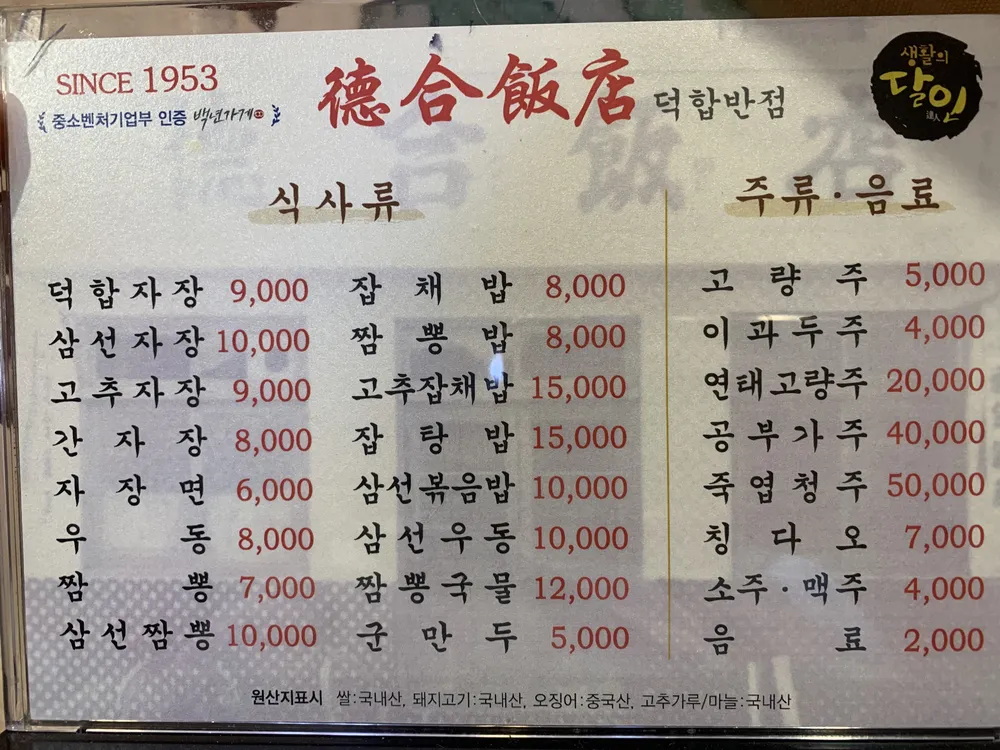 SINCE 1953
중소벤처기업부 인증 백년가게
德合飯店 덕합반점
생활의
달인
達人
식사류
덕합자장 9,000
삼선자장 10,000
고추자장 9,000
간자장 8,000
자장면 6,000
우동 8,000
짬뽕 7,000
삼선짬뽕 10,000
잡채밥 8,000
짬뽕밥 8,000
고추잡채밥 15,000
잡탕밥 15,000
삼선볶음밥 10,000
삼선우동 10,000
짬뽕국물 12,000
군만두 5,000
주류·음료
고량주 5,000
이과두주 4,000
연태고량주 20,000
공부가주 40,000
죽엽청주 50,000
칭다오 7,000
소주·맥주 4,000
음료 2,000
원산지표시 쌀:국내산, 돼지고기:국내산, 오징어:중국산, 고추가루/마늘:국내산